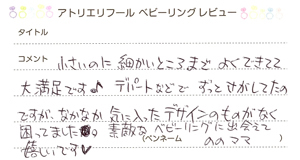 アトリエリフール ベビーリングレビュー
タイトル
コメント 小さいのに 細かいところまで よくできてて
大満足です♪ デパートなどで ずっとさがしてたの
ですが、なかなか 気に入ったデザインのものがなく
困ってました。 素敵な ベビーリングに出会えて
嬉しいです♥ (ペンネーム ののママ )